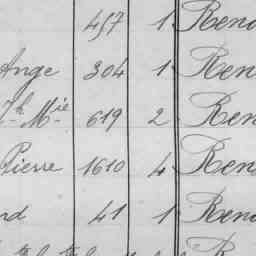 457 1 Ren
Ange 304 1 Ren
Mie 619 2 Ren
Pierre 1610 4 Ren
41 1 Ren